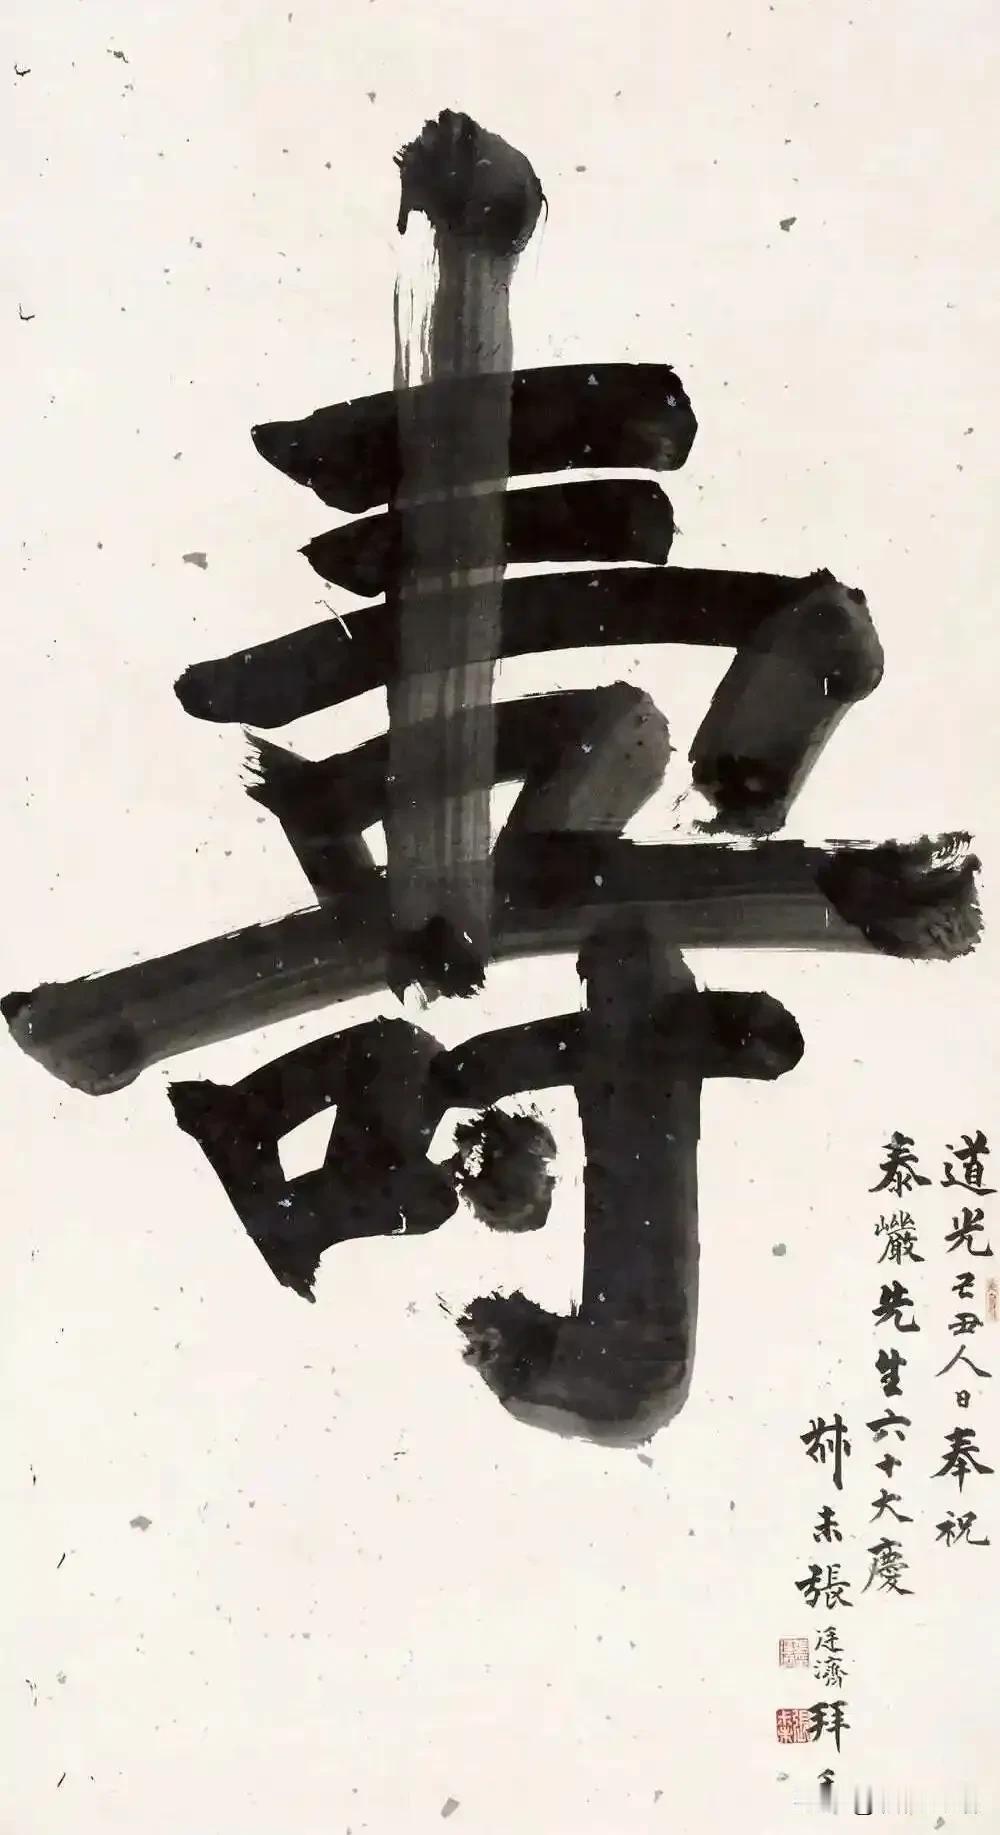 壽
道光己丑人日奉祝
泰巖先生六十大慶
叔未張廷濟拜手